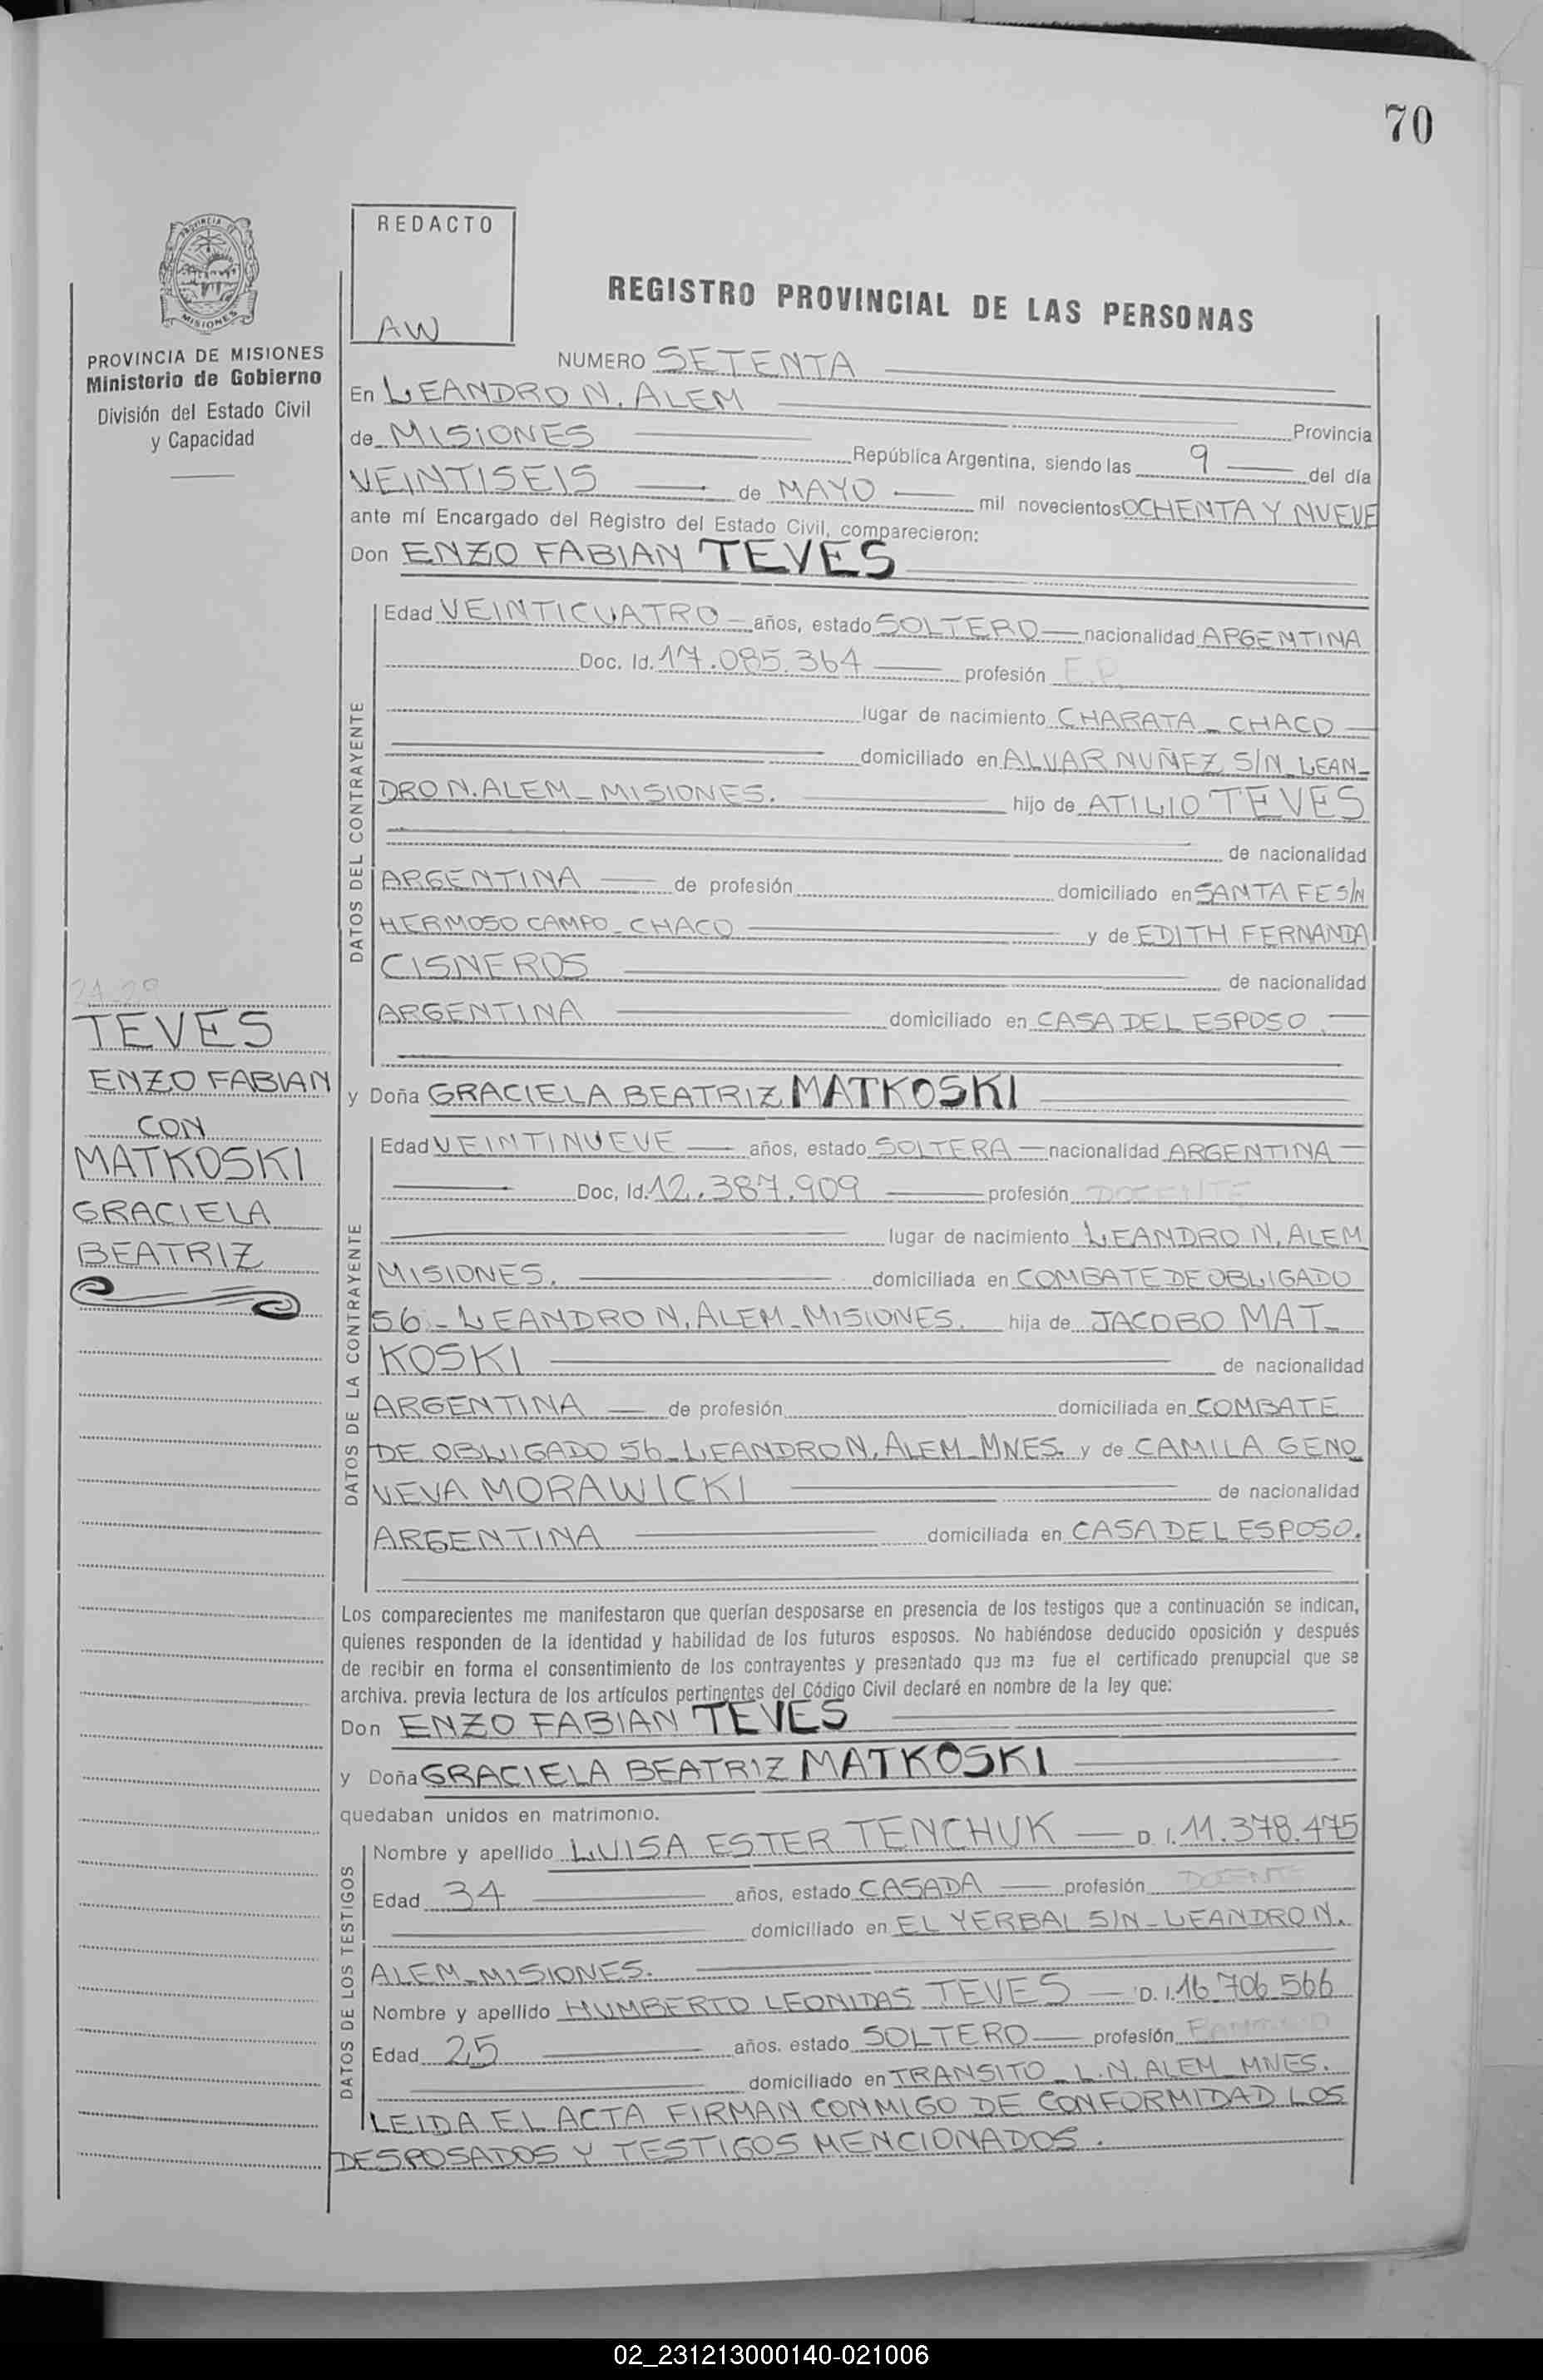 70
PROVINCIA DE MISIONES
Ministerio de Gobierno
División del Estado Civil
y Capacidad
REDACTO
AW
REGISTRO PROVINCIAL DE LAS PERSONAS
NUMERO SETENTA
En LEANDRO N. ALEM
Provincia
de MISIONES República Argentina, siendo las 9 del día
VEINTISEIS de MAYO mil novecientos OCHENTA Y NUEVE
ante mí Encargado del Registro del Estado Civil, comparecieron:
Don ENZO FABIAN TEVES
DATOS DEL CONTRAYENTE
Edad VEINTICUATRO años, estado SOLTERO nacionalidad ARGENTINA
Doc. Id. 17.085.364 profesión E.P.
lugar de nacimiento CHARATA - CHACO
domiciliado en ALVAR NUÑEZ S/N - LEAN-
DRO N. ALEM - MISIONES. hijo de ATILIO TEVES
de nacionalidad
ARGENTINA de profesión domiciliado en SANTA FE S/N
HERMOSO CAMPO - CHACO y de EDITH FERNANDA
CISNEROS de nacionalidad
ARGENTINA domiciliado en CASA DEL ESPOSO.
TEVES
ENZO FABIAN
CON
MATKOSKI
GRACIELA
BEATRIZ
y Doña GRACIELA BEATRIZ MATKOSKI
DATOS DE LA CONTRAYENTE
Edad VEINTINUEVE años, estado SOLTERA nacionalidad ARGENTINA
Doc. Id. 12.387.909 profesión DOCENTE
lugar de nacimiento LEANDRO N. ALEM
MISIONES. domiciliada en COMBATE DE OBLIGADO
56 - LEANDRO N. ALEM - MISIONES. hija de JACOBO MAT-
KOSKI de nacionalidad
ARGENTINA de profesión domiciliada en COMBATE
DE OBLIGADO 56 - LEANDRO N. ALEM - MNES. y de CAMILA GENO
VEVA MORAWICKI de nacionalidad
ARGENTINA domiciliada en CASA DEL ESPOSO.
Los comparecientes me manifestaron que querían desposarse en presencia de los testigos que a continuación se indican,
quienes responden de la identidad y habilidad de los futuros esposos. No habiéndose deducido oposición y después
de recibir en forma el consentimiento de los contrayentes y presentado que me fue el certificado prenupcial que se
archiva. previa lectura de los artículos pertinentes del Código Civil declaré en nombre de la ley que:
Don ENZO FABIAN TEVES
y Doña GRACIELA BEATRIZ MATKOSKI
quedaban unidos en matrimonio.
DATOS DE LOS TESTIGOS
Nombre y apellido LUISA ESTER TENCHUK D. I. 11.378.475
Edad 34 años, estado CASADA profesión DOCENTE
domiciliado en EL YERBAL S/N - LEANDRO N.
ALEM - MISIONES.
Nombre y apellido HUMBERTO LEONIDAS TEVES D. I. 16.706.566
Edad 25 años. estado SOLTERO profesión
domiciliado en TRANSITO - L.N. ALEM - MNES.
LEIDA EL ACTA FIRMAN CONMIGO DE CONFORMIDAD LOS
DESPOSADOS Y TESTIGOS MENCIONADOS.
02_231213000140-021006